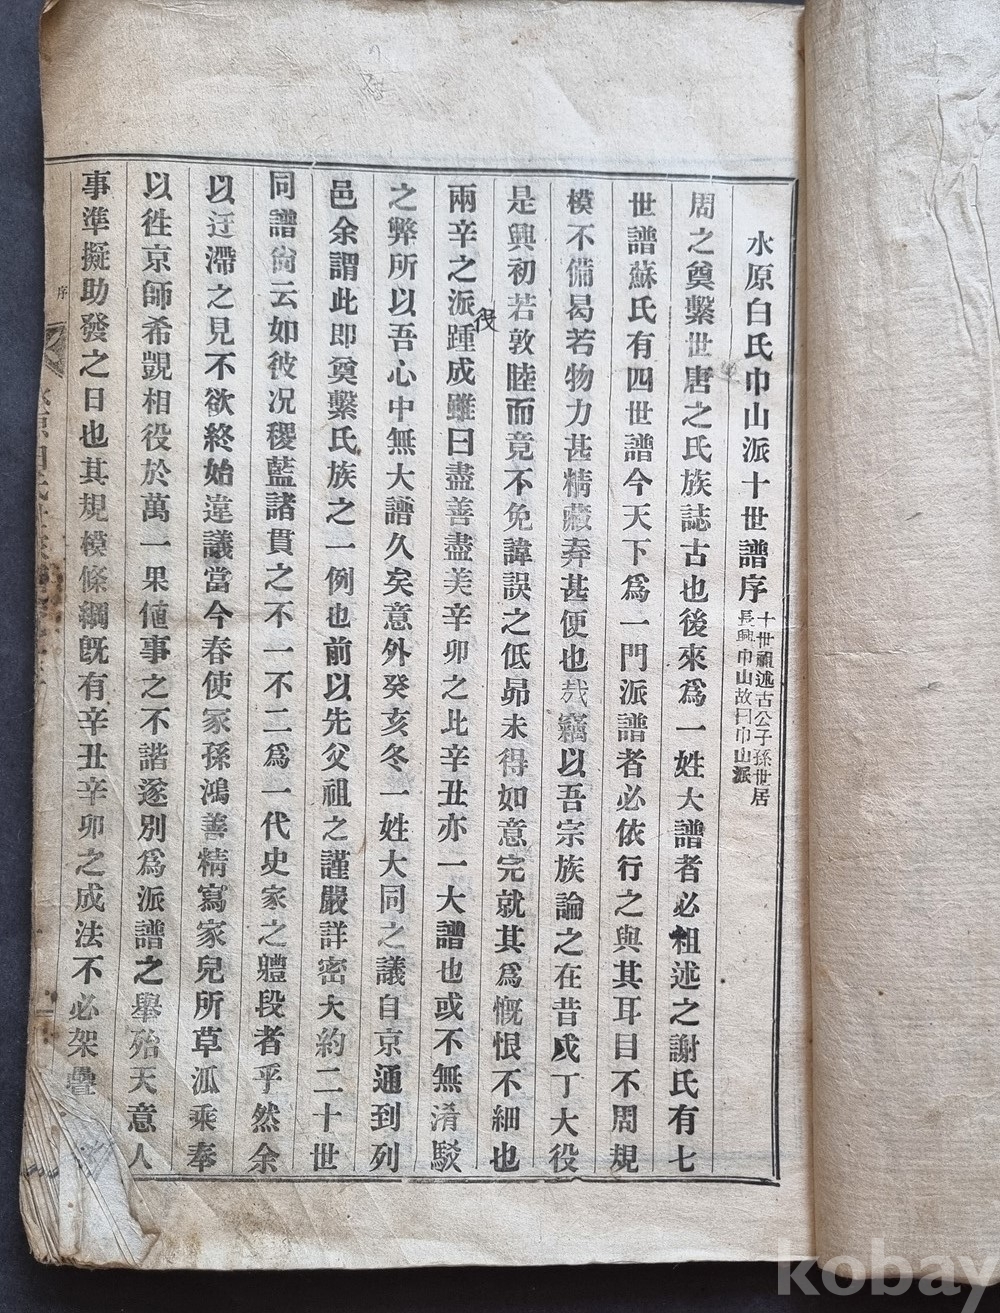 水原白氏巾山派十世譜序
十世祖述古公子孫世居
長興巾山故曰巾山派
周之奠繫世唐之氏族誌古也後來爲一姓大譜者必祖述之謝氏有七
世譜蘇氏有四世譜今天下爲一門派譜者必依行之與其耳目不周規
模不備曷若物力甚精藏弆甚便也哉竊以吾宗族論之在昔戊丁大役
是興初若敦睦而竟不免諱誤之低昻未得如意完就其爲慨恨不細也
兩辛之派踵成雖曰盡善盡美辛卯之比辛丑亦一大譜也或不無淆駁
役
之弊所以吾心中無大譜久矣意外癸亥冬一姓大同之議自京通到列
邑余謂此即奠繫氏族之一例也前以先父祖之謹嚴詳密大約二十世
同譜尙云如彼况稷藍諸貫之不一不二爲一代史家之軆段者乎然余
以迂滯之見不欲終始違議當今春使冢孫鴻善精寫家兒所草泒乘奉
以徃京師希覬相役於萬一果値事之不諧遂別爲派譜之擧殆天意人
事準擬助發之日也其規模條綱旣有辛丑辛卯之成法不必架疊
序